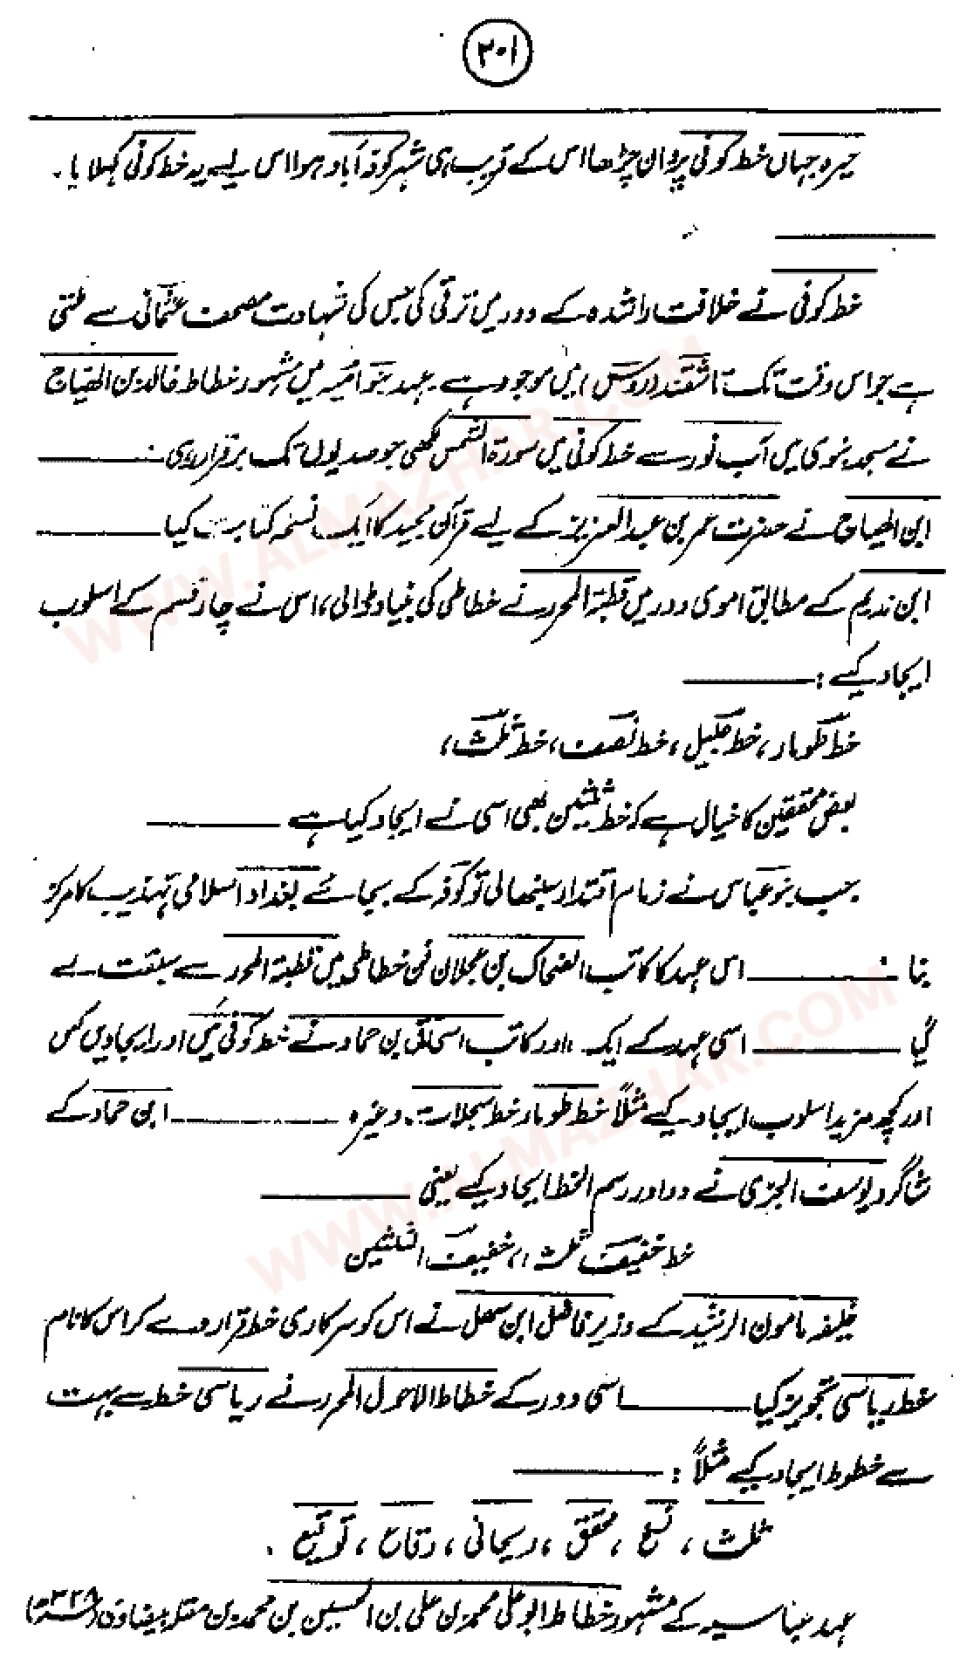 ۲۰۱
حیرہ جہاں خط کوفی پروان چڑھا اس کے قریب ہی شہر کوفہ آباد ہوا اس لیے یہ خط کوفی کہلایا۔
خط کوفی نے خلافت راشدہ کے دور میں ترقی کی جس کی شہادت مصحف عثمانی سے ملتی
ہے جو اس وقت تک تاشقند (روس) میں موجود ہے۔ عہد بنو امیہ میں مشہور خطاط خالد بن الھیاج
نے مسجد نبوی میں آب نور سے خط کوفی میں سورۃ الشمس لکھی جو صدیوں تک برقرار رہی :
ابن الھیاج نے حضرت عمر بن عبدالعزیز کے لیے قرآن مجید کا ایک نسخہ کتابت کیا
ابن ندیم کے مطابق اموی دور میں قطبۃ المحرر نے خطاطی کی بنیاد ڈالی، اس نے چار قسم کے اسلوب
ایجاد کیے :
خط طومار، خط جلیل، خط نصف، خط ثلث،
بعض محققین کا خیال ہے کہ خط ثلثین بھی اسی نے ایجاد کیا ہے
جب بنو عباس نے زمام اقتدار سنبھالی تو کوفہ کے بجائے بغداد اسلامی تہذیب کا مرکز
بنا : اس عہد کا کاتب الضحاک بن عجلان فن خطاطی میں قطبۃ المحرر سے سبقت لے
گیا اسی عہد کے ایک اور کاتب اسحاق بن حماد نے خط کوفی میں اور ایجادیں کیں
اور کچھ مزید اسلوب ایجاد کیے مثلاً خط طومار خط سجلات۔ وغیرہ ابن حماد کے
شاگرد یوسف الجزی نے دو اور رسم الخط ایجاد کیے یعنی
خط خفیف ثلث ،، خفیف الثلثین
خلیفہ مامون الرشید کے وزیر فاضل ابن سھل نے اس کو سرکاری خط قرار دے کر اس کا نام
خط ریاسی تجویز کیا اسی دور کے خطاط الاحول المحرر نے ریاسی خط سے بہت
سے خطوط ایجاد کیے مثلاً :
ثلث، نسخ، محقق، ریحانی، رقاع، توقیع۔
عہد عباسیہ کے مشہور خطاط ابو علی محمد بن علی بن الحسین بن محمد بن مقلہ بیضاوی
WWW.ALMAZHAR.COM
WWW.ALMAZHAR.COM